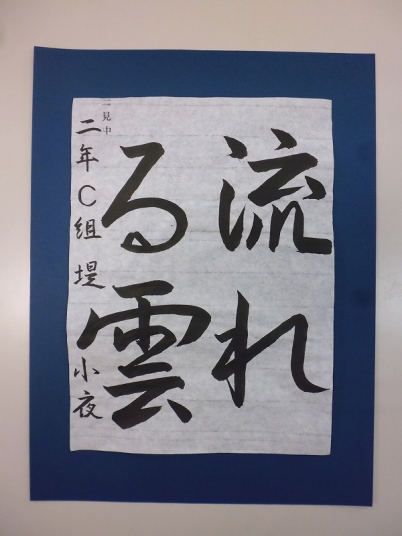 流れ
る雲
二見中
二年C組堤小夜